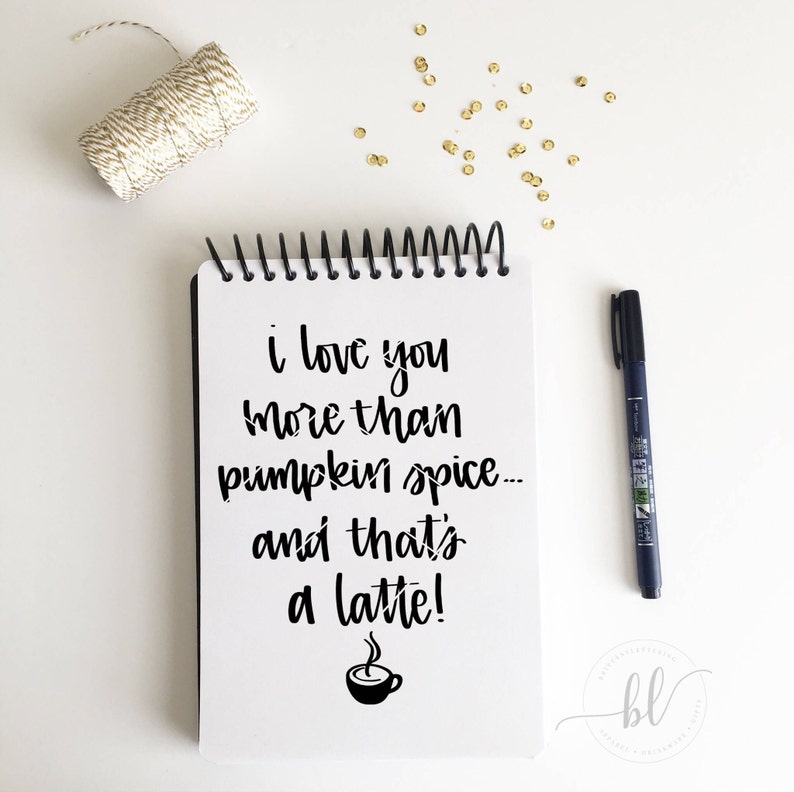 i love you
more than
pumpkin spice...
and that's
a latte!
bl